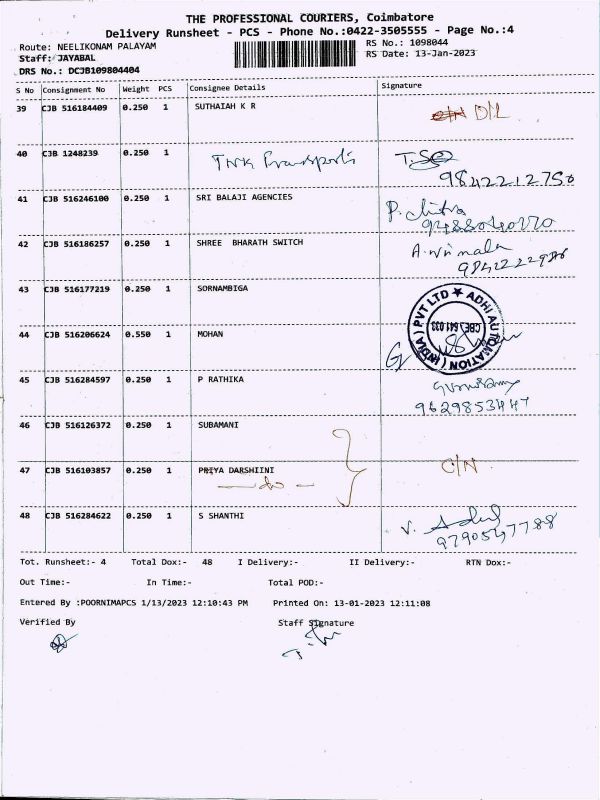 THE PROFESSIONAL COURIERS, Coimbatore
Delivery Runsheet - PCS - Phone No.:0422-3505555 - Page No.:4
Route: NEELIKONAM PALAYAM
RS No.: 1098044
Staff: JAYABAL
RS Date: 13-Jan-2023
DRS No.: DCJB109804404
S No Consignment No Weight PCS Consignee Details Signature
39 CJB 516184409 0.250 1 SUTHAIAH K R D/L
40 CJB 1248239 0.250 1 TNK Transports
9842212756
41 CJB 516246100 0.250 1 SRI BALAJI AGENCIES P. Chitra
42 CJB 516186257 0.250 1 SHREE BHARATH SWITCH A. Nirmala
43 CJB 516177219 0.250 1 SORNAMBIGA
ADHI AUTOMATION (INDIA) PVT LTD
CBE, 641 033
44 CJB 516206624 0.550 1 MOHAN
45 CJB 516284597 0.250 1 P RATHIKA
9629853447
46 CJB 516126372 0.250 1 SUBAMANI
47 CJB 516103857 0.250 1 PRIYA DARSHIINI C/N
— do —
48 CJB 516284622 0.250 1 S SHANTHI V.
9790547788
Tot. Runsheet:- 4 Total Dox:- 48 I Delivery:- II Delivery:- RTN Dox:-
Out Time:- In Time:- Total POD:-
Entered By :POORNIMAPCS 1/13/2023 12:10:43 PM Printed On: 13-01-2023 12:11:08
Verified By Staff Signature